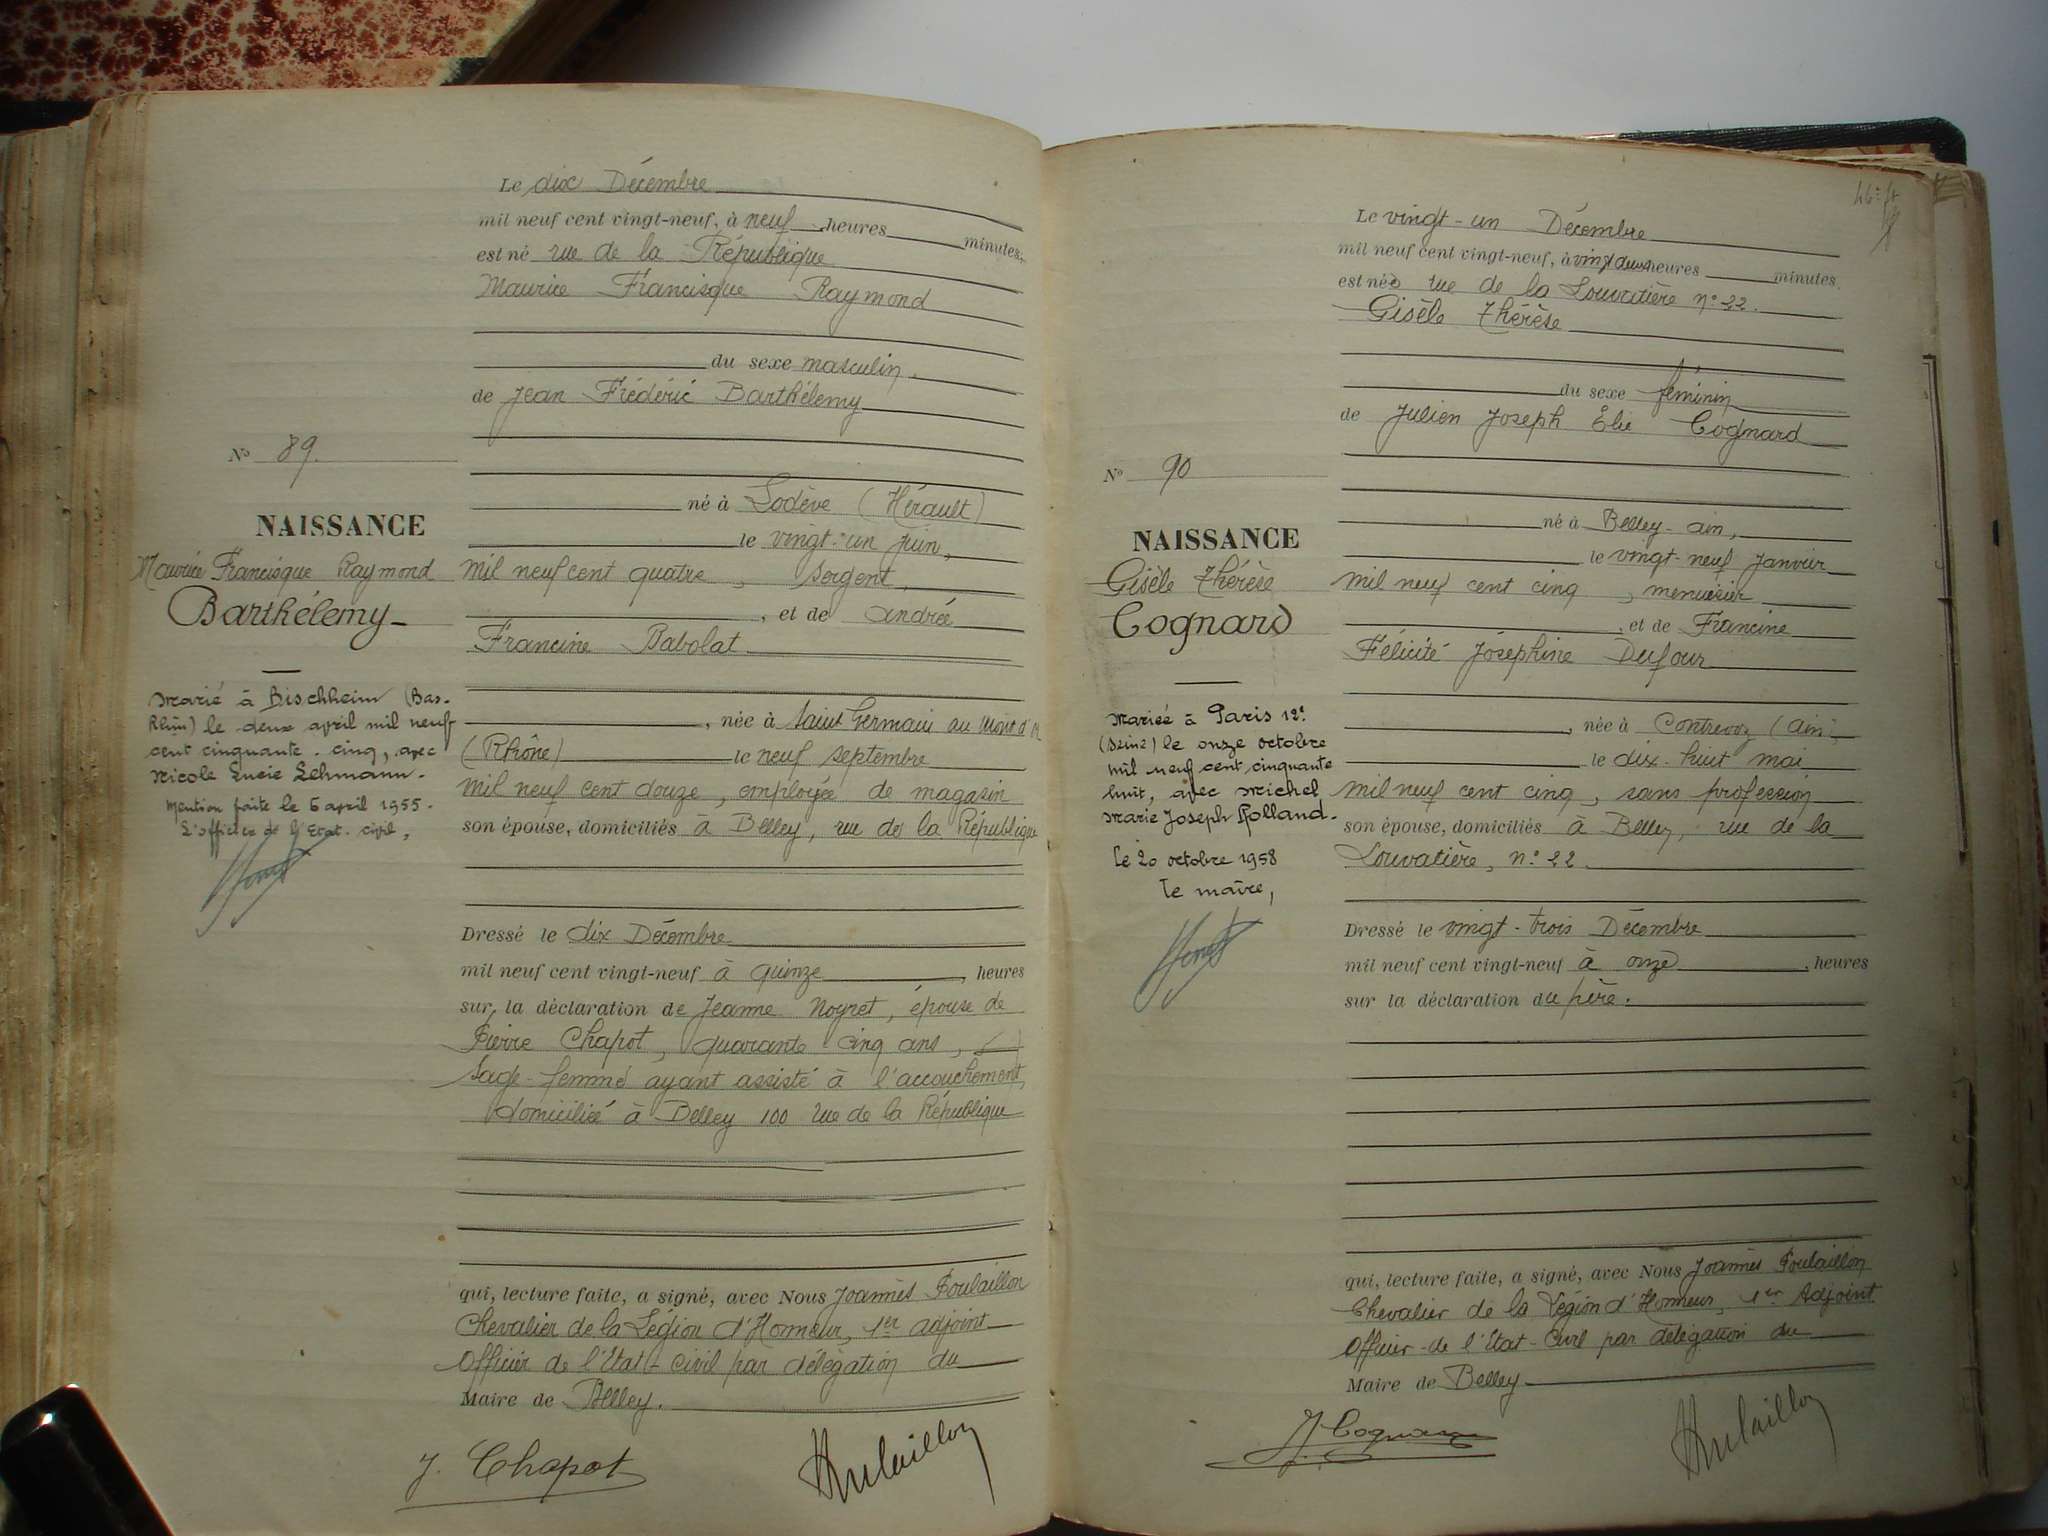 Le dix Décembre
mil neuf cent vingt-neuf, à neuf heures minutes
est né rue de la République
Maurice Francisque Raymond
du sexe masculin
de Jean Frédéric Barthélemy
né à Lodève (Hérault)
le vingt-un juin,
mil neuf cent quatre, sergent,
, et de Andrée
Francine Babolat
, née à Saint Germain au Mont d'Or
(Rhône) le neuf septembre
mil neuf cent douze, employée de magasin
son épouse, domiciliés à Belley, rue de la République
Dressé le dix Décembre
mil neuf cent vingt-neuf à quinze, heures
sur la déclaration de Jeanne Noyret, épouse de
Pierre Chapot, quarante cinq ans,
sage-femme ayant assisté à l'accouchement,
domiciliée à Belley 100 rue de la République
qui, lecture faite, a signé, avec Nous Joannès Poulaillon
Chevalier de la Légion d'Honneur, 1er adjoint
Officier de l'Etat-Civil par délégation du
Maire de Belley.
J. Chapot
Poulaillon
No 89.
NAISSANCE
Maurice Francisque Raymond
Barthélemy
Marié à Bischheim (Bas-
Rhin) le deux april mil neuf
cent cinquante-cinq, avec
Nicole Lucie Lehmann.
Mention faite le 6 april 1955.
L'officier de l'Etat-civil,
46e ft
Le vingt-un Décembre
mil neuf cent vingt-neuf, à vingt deux heures minutes.
est née rue de la Louvatière n° 22.
Gisèle Thérèse
du sexe féminin
de Julien Joseph Elie Cognard
né à Belley-ain,
le vingt-neuf janvier
mil neuf cent cinq, menuisier
, et de Francine
Félicité Joséphine Dufour
, née à Contrevoz (Ain),
le dix-huit mai
mil neuf cent cinq, sans profession
son épouse, domiciliés à Belley, rue de la
Louvatière, n° 22.
Dressé le vingt-trois Décembre
mil neuf cent vingt-neuf à onze, heures
sur la déclaration du père.
qui, lecture faite, a signé, avec Nous Joannès Poulaillon
Chevalier de la Légion d'Honneur, 1er Adjoint
Officier de l'Etat-Civil par délégation du
Maire de Belley
J. Cognard
Poulaillon
No 90
NAISSANCE
Gisèle Thérèse
Cognard
Mariée à Paris 12e
(Seine) le onze octobre
mil neuf cent cinquante
huit, avec Michel
Marie Joseph Rolland.
Le 20 octobre 1958
Le maire,